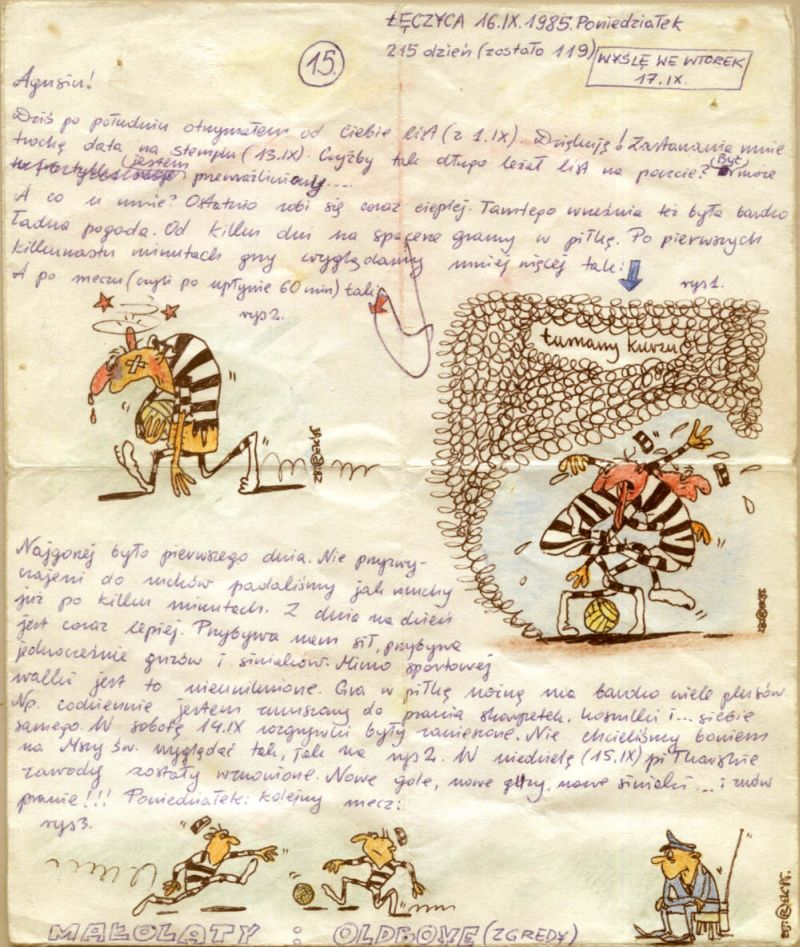 ŁĘCZYCA 16.IX.1985. Poniedziałek
215 dzień (zostało 119)
WYŚLĘ WE WTOREK
17.IX.
15.
Agusiu!
Dziś po południu otrzymałem od Ciebie list (z 1.IX). Dziękuję! Zastanawia mnie
trochę data na stemplu (13.IX). Czyżby tak długo leżał list na poczcie? (Być) może
jestem przewrażliwiony...
A co u mnie? Ostatnio robi się coraz cieplej. Tamtego września też była bardzo
ładna pogoda. Od kilku dni na spacerze gramy w piłkę. Po pierwszych
kilkunastu minutach gry wyglądamy mniej więcej tak:
rys 1.
A po meczu (czyli po upłynie 60 min) tak:
rys 2.
tumany kurzu
Najgorzej było pierwszego dnia. Nie przyzwy-
czajeni do ruchów padaliśmy jak muchy
już po kilku minutach. Z dnia na dzień
jest coraz lepiej. Przybywa nam sił, przybywa
jednocześnie guzów i siniaków. Mimo sportowej
walki jest to nieuniknione. Gra w piłkę nożną ma bardzo wiele plusów.
Np. codziennie jestem zmuszony do prania skarpetek, koszulki i... siebie
samego. W sobotę 14.IX rozgrywki były zawieszone. Nie chcieliśmy bowiem
na Mszy św. wyglądać tak, jak na rys 2. W niedzielę (15.IX) piłkarskie
zawody zostały wznowione. Nowe gole, nowe guzy, nowe siniaki... i znów
pranie!!! Poniedziałek: kolejny mecz:
rys 3.
MAŁOLATY : OLDBOYE (ZGREDY)